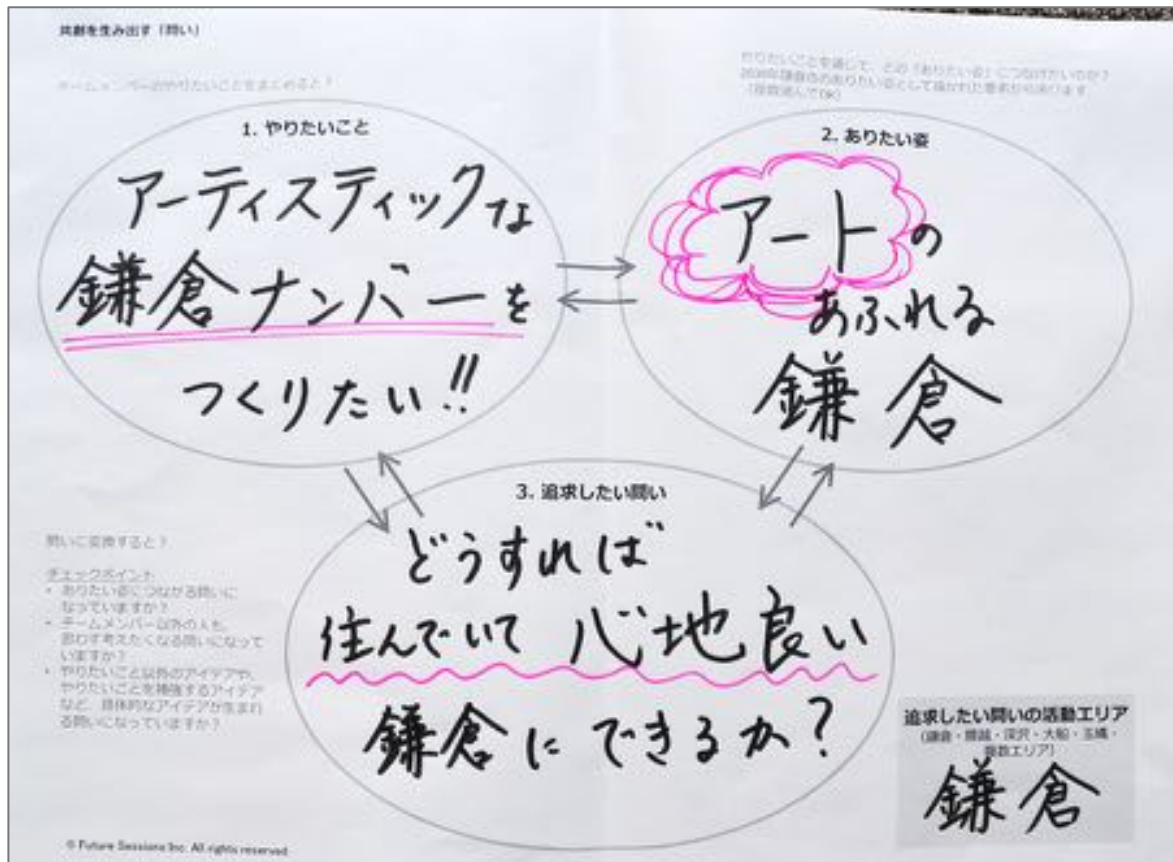 共創を生み出す「問い」
チームメンバーのやりたいことをまとめると？
やりたいことを通じて、どの「ありたい姿」につなげたいのか？
(複数選んでOK)
1. やりたいこと
アーティスティックな
鎌倉ナンバーを
つくりたい!!
2. ありたい姿
アートの
あふれる
鎌倉
3. 追求したい問い
どうすれば
住んでいて 心地良い
鎌倉にできるか?
問いに変換すると？
チェックポイント
• ありたい姿につながる問いに
なっていますか？
• チームメンバー以外の人も、
思わず考えたくなる問いになって
いますか？
• やりたいこと以外のアイデアや、
やりたいことを補強するアイデア
など、具体的なアイデアが生まれ
る問いになっていますか？
追求したい問いの活動エリア
(鎌倉・腰越・深沢・大船・玉縄・
複数エリア)
鎌倉
© Future Sessions Inc. All rights reserved